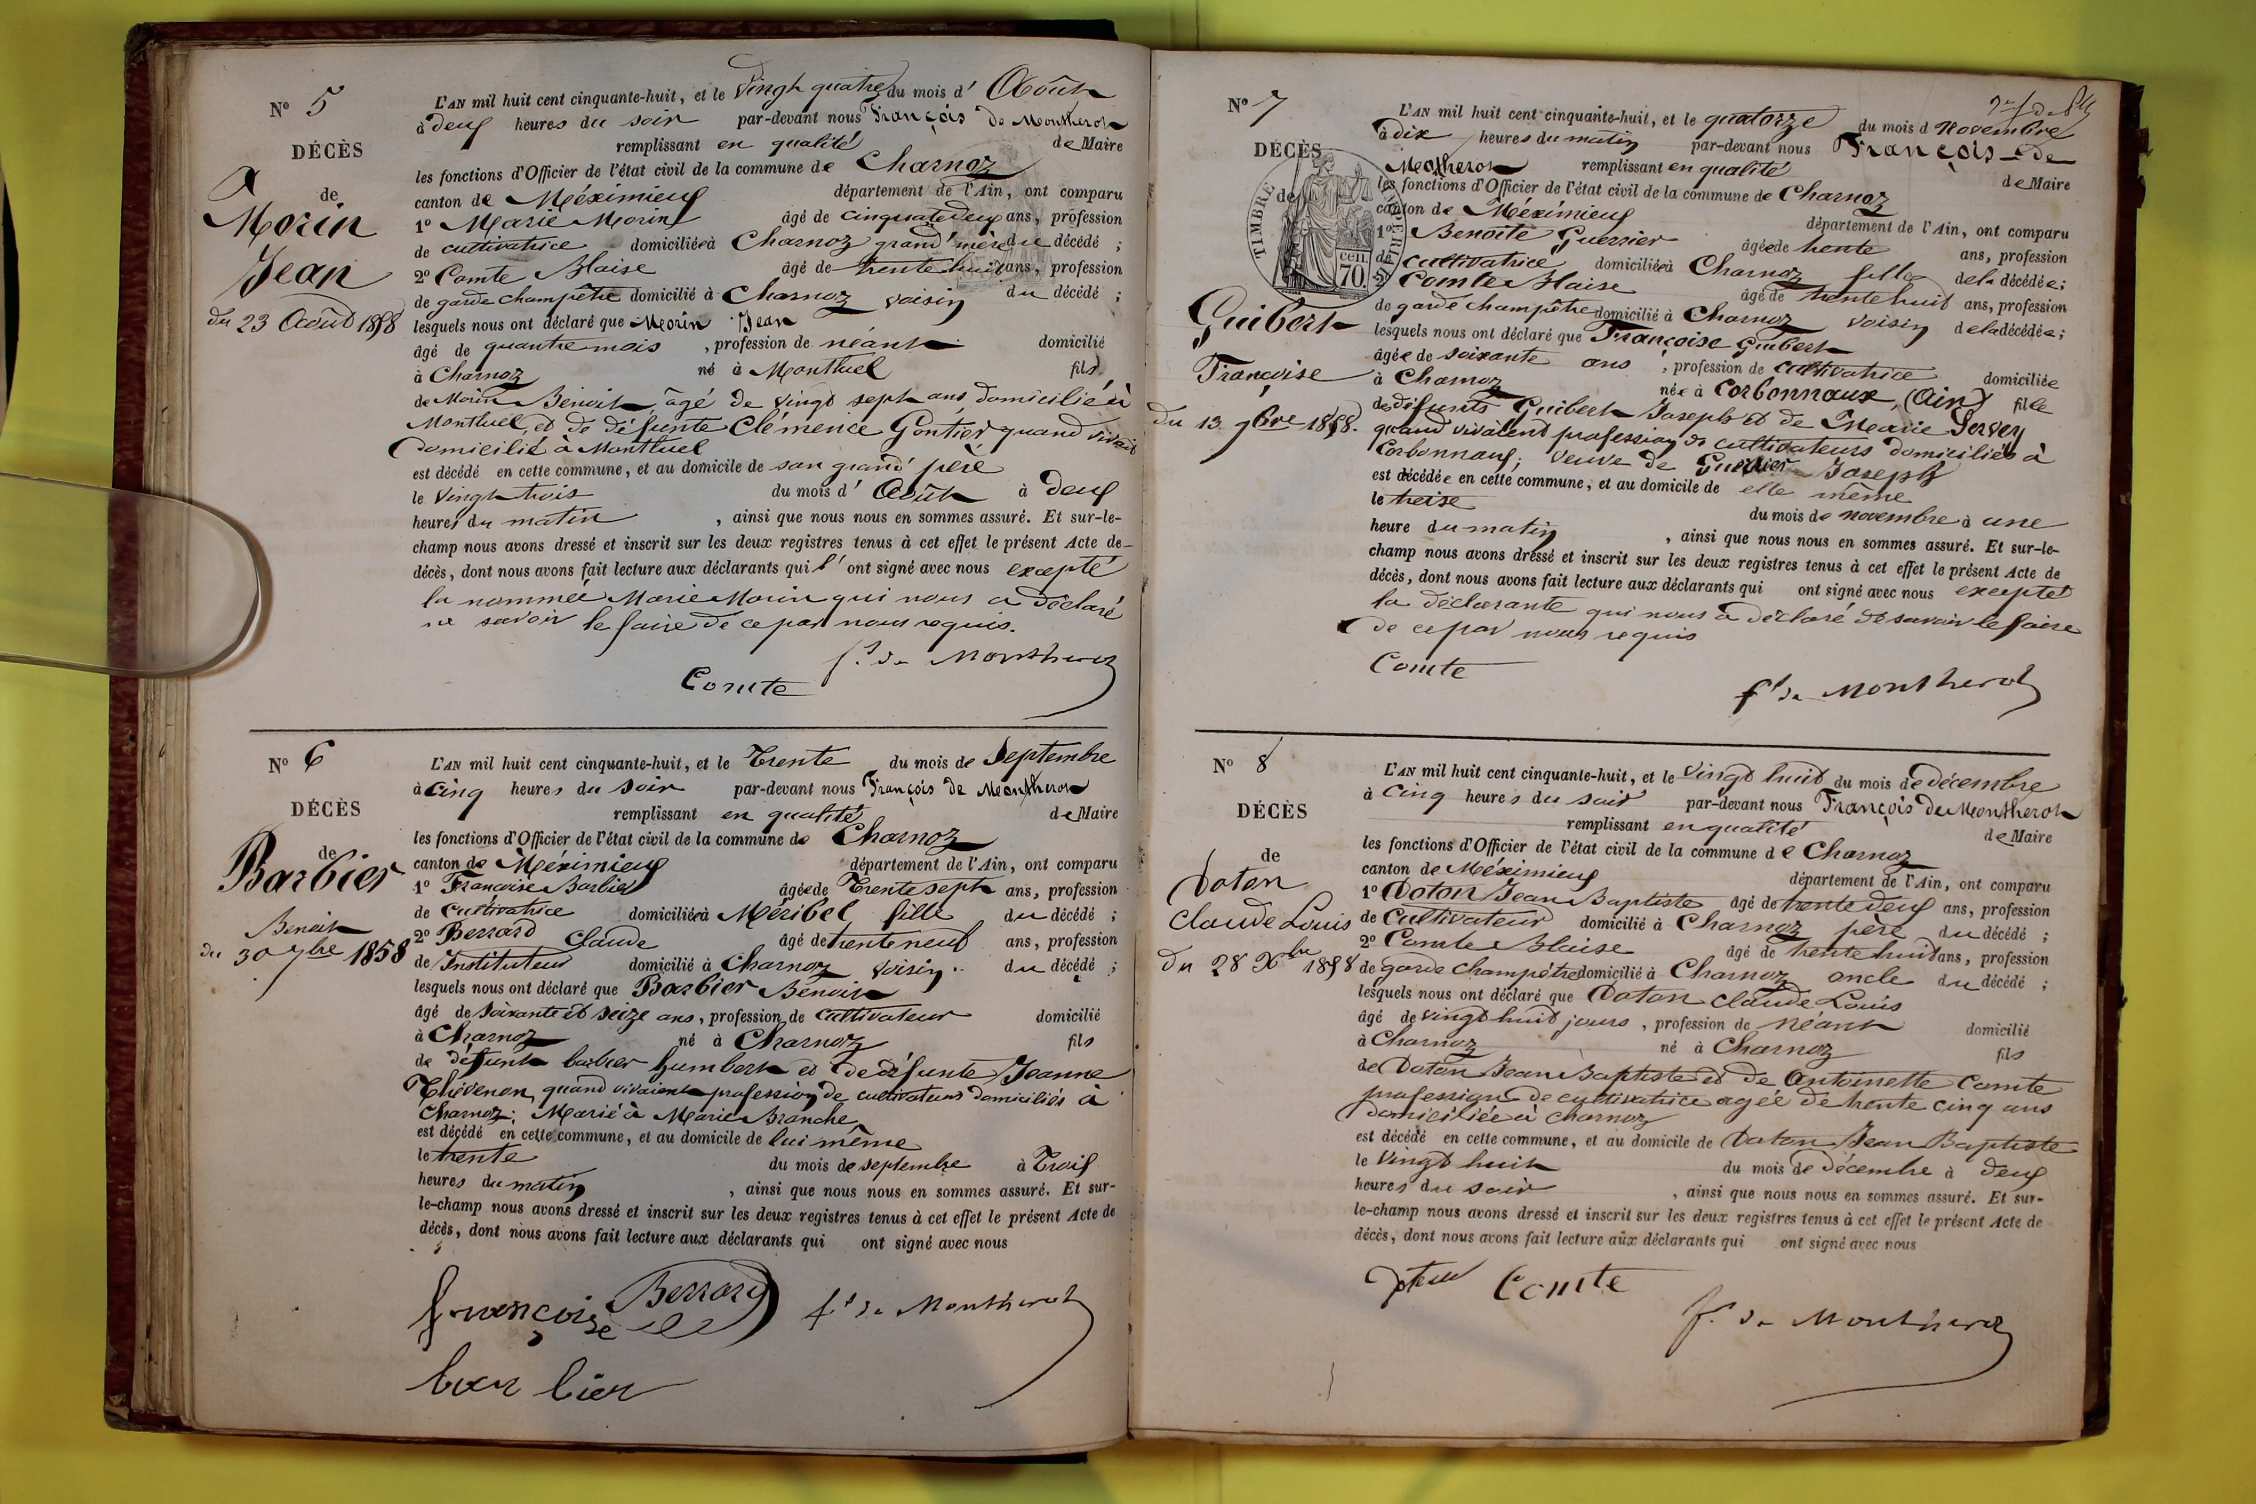 N° 5
DÉCÈS
de
Morin
Jean
du 23 Août 1858
L'AN mil huit cent cinquante-huit, et le vingt quatre du mois d' Août
à deux heures du soir par-devant nous François de Montherot
remplissant en qualité de Maire
les fonctions d'Officier de l'état civil de la commune de Charnoz
canton de Méximieux département de l'Ain, ont comparu
1° Marie Morin âgé de cinquante deux ans, profession
de cultivatrice domiciliée à Charnoz grand'mère du décédé ;
2° Comte Blaise âgé de trente huit ans, profession
de garde champêtre domicilié à Charnoz voisin du décédé ;
lesquels nous ont déclaré que Morin Jean
âgé de quantre mois , profession de néant domicilié
à Charnoz né à Montluel fils
de Morin Benoit, âgé de vingt sept ans domicilié à
Montluel, et de défunte Clémence Gontier quand vivait
domicilié à Montluel
est décédé en cette commune, et au domicile de son grand'père
le vingt trois du mois d' Août à deux
heures du matin , ainsi que nous nous en sommes assuré. Et sur-le-
champ nous avons dressé et inscrit sur les deux registres tenus à cet effet le présent Acte de
décès, dont nous avons fait lecture aux déclarants qui l' ont signé avec nous excepté
la nommée Marie Morin qui nous a déclaré
ne savoir le faire de ce par nous requis.
f.s de Montherot
Comte
N° 6
DÉCÈS
de
Barbier
Benoit
du 30 7bre 1858
L'AN mil huit cent cinquante-huit, et le Trente du mois de Septembre
à cinq heures du soir par-devant nous François de Montherot
remplissant en qualité de Maire
les fonctions d'Officier de l'état civil de la commune de Charnoz
canton de Méximieux département de l'Ain, ont comparu
1° Françoise Barbier âgée de Trente sept ans, profession
de cultivatrice domiciliée à Méribel fille du décédé ;
2° Berrard Claude âgé de trente neuf ans, profession
de Instituteur domicilié à Charnoz voisin du décédé ;
lesquels nous ont déclaré que Barbier Benoit
âgé de soixante et seize ans, profession de cultivateur domicilié
à Charnoz né à Charnoz fils
de défunt barbier humbert et de défunte Jeanne
Thévenon, quand vivaient profession de cultivateurs domiciliés à
Charnoz ; Marié à Marie Branche,
est décédé en cette commune, et au domicile de lui même
le trente du mois de septembre à Trois
heures du matin , ainsi que nous nous en sommes assuré. Et sur-
le-champ nous avons dressé et inscrit sur les deux registres tenus à cet effet le présent Acte de
décès, dont nous avons fait lecture aux déclarants qui ont signé avec nous
françoise Berrard f.s de Montherot
barbier
N° 7
DÉCÈS
de
TIMBRE IMPERIAL
70 cen.
Guibert
Françoise
du 13 9bre 1858.
L'AN mil huit cent cinquante-huit, et le quatorze du mois d novembre
à dix heures du matin par-devant nous François de
Montherot remplissant en qualité de Maire
les fonctions d'Officier de l'état civil de la commune de Charnoz
canton de Méximieux département de l'Ain, ont comparu
1° Benoite Guerrier âgée de trente ans, profession
de cultivatrice domiciliée à Charnoz fille de la décédée ;
2° Comte Blaise âgé de trente huit ans, profession
de garde champêtre domicilié à Charnoz voisin de la décédée ;
lesquels nous ont déclaré que Françoise Guibert
âgée de soixante ans , profession de cultivatrice domiciliée
à Charnoz née à Corbonnaux, (Ain) fille
de défunts Guibert Joseph et de Marie Servey
quand vivaient profession de cultivateurs domiciliés à
Corbonnaux ; veuve de Guerrier Joseph
est décédée en cette commune, et au domicile de elle même
le treise du mois de novembre à une
heure du matin , ainsi que nous nous en sommes assuré. Et sur-le-
champ nous avons dressé et inscrit sur les deux registres tenus à cet effet le présent Acte de
décès, dont nous avons fait lecture aux déclarants qui ont signé avec nous excepté
la déclarante qui nous a déclaré ne savoir le faire
de ce par nous requis
Comte
f.s de Montherot
N° 8
DÉCÈS
de
Doton
Claude Louis
du 28 Xbre 1858
L'AN mil huit cent cinquante-huit, et le vingt huit du mois de décembre
à cinq heures du soir par-devant nous François de Montherot
remplissant en qualité de Maire
les fonctions d'Officier de l'état civil de la commune de Charnoz
canton de Méximieux département de l'Ain, ont comparu
1° Doton Jean Baptiste âgé de trente deux ans, profession
de cultivateur domicilié à Charnoz père du décédé ;
2° Comte Blaise âgé de trente huit ans, profession
de garde champêtre domicilié à Charnoz oncle du décédé ;
lesquels nous ont déclaré que Doton Claude Louis
âgé de vingt huit jours , profession de Néant domicilié
à Charnoz né à Charnoz fils
de Doton Jean Baptiste et de Antoinette Comte
profession de cultivatrice agée de trente cinq ans
domiciliée à Charnoz
est décédé en cette commune, et au domicile de Doton Jean Baptiste
le vingt huit du mois de décembre à deux
heures du soir , ainsi que nous nous en sommes assuré. Et sur-
le-champ nous avons dressé et inscrit sur les deux registres tenus à cet effet le présent Acte de
décès, dont nous avons fait lecture aux déclarants qui ont signé avec nous
Comte
f.s de Montherot